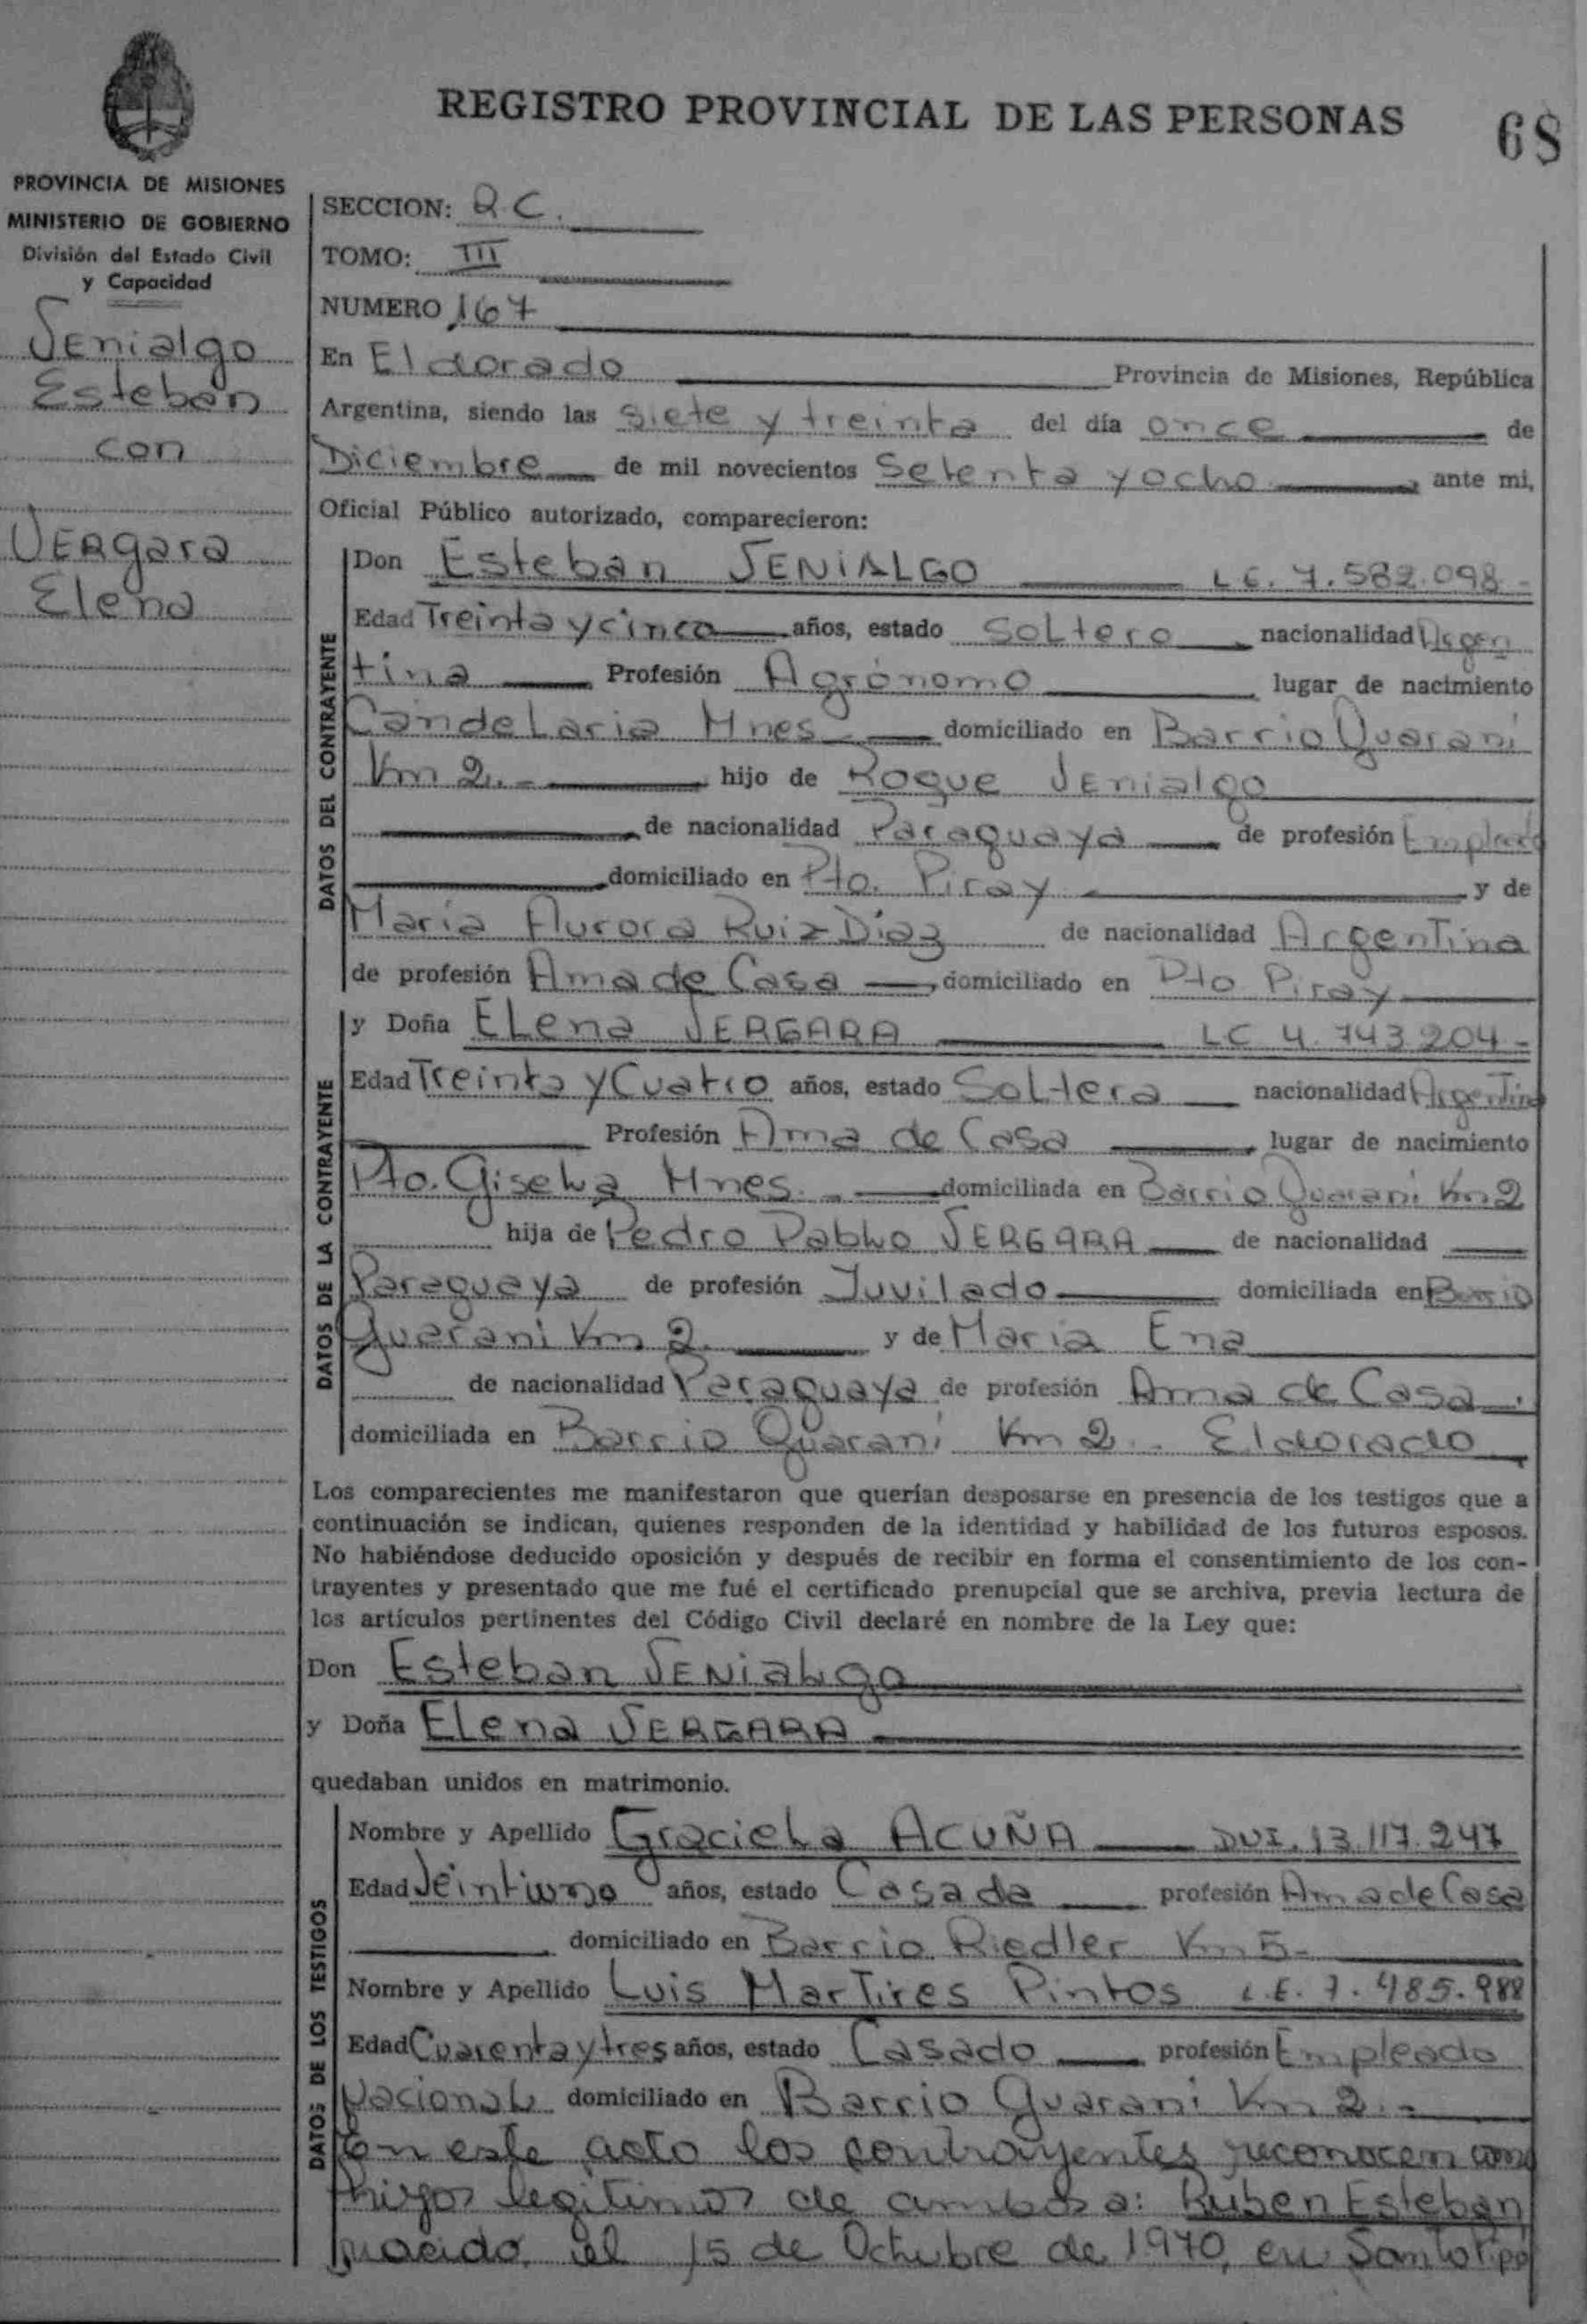 REGISTRO PROVINCIAL DE LAS PERSONAS
68
PROVINCIA DE MISIONES
MINISTERIO DE GOBIERNO
División del Estado Civil
y Capacidad
VEnialgo
Esteban
con
VERgara
Elena
SECCION: R.C.
TOMO: III
NUMERO 167
En Eldorado Provincia de Misiones, República
Argentina, siendo las siete y treinta del día once de
Diciembre de mil novecientos Setenta y ocho ante mi,
Oficial Público autorizado, comparecieron:
DATOS DEL CONTRAYENTE
Don Esteban VENIALGO L.E. 7.582.098-
Edad Treinta y cinco años, estado SoLtero nacionalidad Argen
tina Profesión Agrónomo lugar de nacimiento
CandeLaria Mnes domiciliado en Barrio Guaraní
Km 2.- hijo de Roque VEnialgo
de nacionalidad Paraguaya de profesión Empleado
domiciliado en Pto. Piray y de
María Aurora Ruiz Díaz de nacionalidad Argentina
de profesión Ama de Casa domiciliado en Pto Piray
DATOS DE LA CONTRAYENTE
y Doña ELena VERGARA LC 4.743.204-
Edad Treinta y Cuatro años, estado SoLtera nacionalidad Argentina
Profesión Ama de Casa lugar de nacimiento
Pto. Gisela Mnes. domiciliada en Barrio Guaraní Km 2
hija de Pedro Pablo VERGARA de nacionalidad
Paraguaya de profesión Juvilado domiciliada en Barrio
Guarani Km 2 y de Maria Ena
de nacionalidad Paraguaya de profesión Ama de Casa.
domiciliada en Barrio Guaraní Km 2. Eldorado
Los comparecientes me manifestaron que querían desposarse en presencia de los testigos que a
continuación se indican, quienes responden de la identidad y habilidad de los futuros esposos.
No habiéndose deducido oposición y después de recibir en forma el consentimiento de los con-
trayentes y presentado que me fué el certificado prenupcial que se archiva, previa lectura de
los artículos pertinentes del Código Civil declaré en nombre de la Ley que:
Don Esteban VENialgo
y Doña Elena VERGARA
quedaban unidos en matrimonio.
DATOS DE LOS TESTIGOS
Nombre y Apellido Graciela ACUÑA DNI. 13.117.247
Edad Veintiuno años, estado Casada profesión Ama de Casa
domiciliado en Barrio Riedler Km 5-
Nombre y Apellido Luis MarTires Pintos L.E. 7.485.988
Edad Cuarenta y tres años, estado Casado profesión Empleado
Nacional domiciliado en Barrio Guaraní Km 2.-
En este acto los contrayentes reconocen como
hijos legítimos de ambos a: Ruben Esteban
nacido el 15 de Octubre de 1970, en Santo Pipó